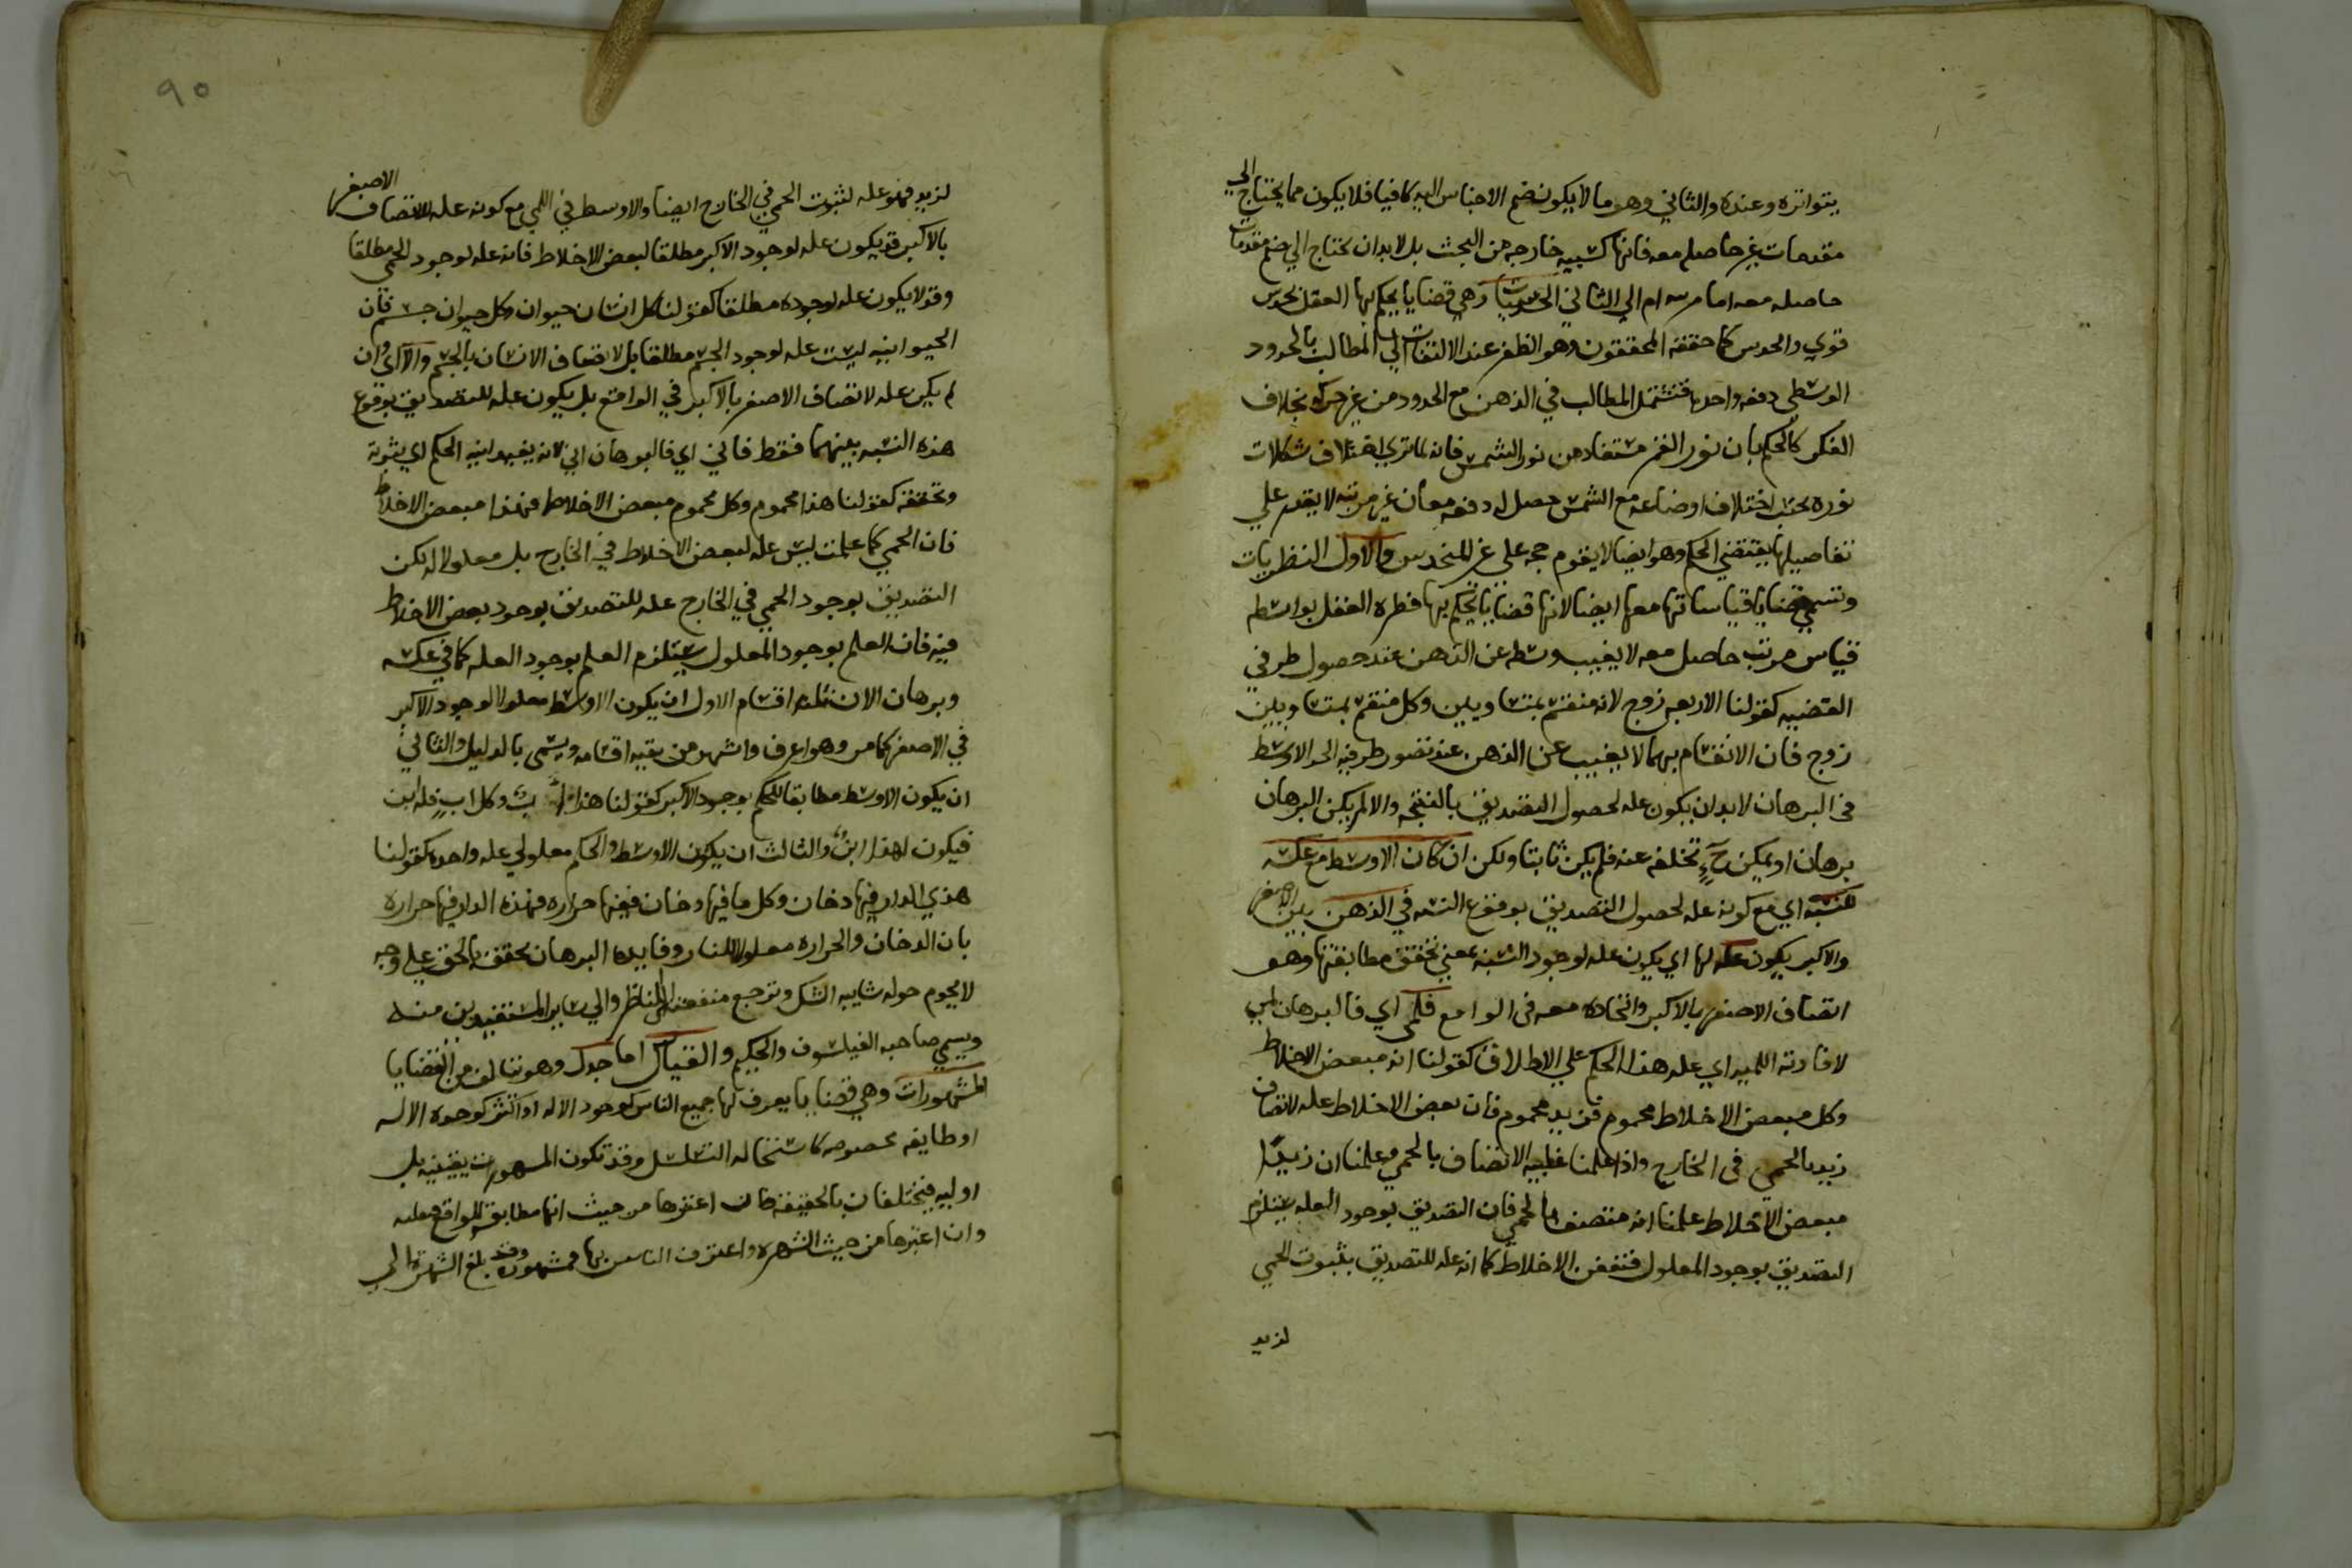 يتواتره وعنده والثاني وهو ما لا يكون ضم الاحباس اليه كافيا فلا يكون مما يحتاج الي
مقدمات غير حاصله معه فانها كسبيه خارجه من البحث بل لا بد ان يحتاج الي ضم مقدمات
حاصله معه اما مرتبه ام لا الثاني الحدسيات وهي قضايا يحكم بها العقل بحدس
قوي والحدس كما حققه المحققون وهو الظفر عند الالتفات الي المطالب بالحدود
الوسطي دفعه واحده فتتمثل المطالب في الذهن مع الحدود من غير حركه بخلاف
الفكر كالحكم بان نور القمر مستفاد من نور الشمس فانه لما تري اختلاف شكلات
نوره بحسب اختلاف اوضاعه مع الشمس حصل له دفعه معان غير مرتبه لا يقدر علي
تفاصيلها يقتضي الحكم وهو ايضا لا يقوم حجه علي غير المتحدس والاول النظريات
وتسمي قضايا قياساتها معها ايضا لانها قضايا يحكم بها فطرة العقل بواسطه
قياس مرتب حاصل معه لا يغيب وسطه عن الذهن عند حصول طرفي
القضيه كقولنا الاربعه زوج لانه منقسم بمتساويين وكل منقسم بمتساويين
زوج فان الانقسام بهما لا يغيب عن الذهن عند تصور طرفيه الحد الاوسط
في البرهان لا بد ان يكون عله لحصول التصديق بالنتيجه والا لم يكن البرهان
برهانا ويمكن ح تخلفه عنه فلم يكن ثابتا ولكن ان كان الاوسط مع عليته
للنسبه اي مع كونه عله لحصول التصديق بوقوع النسبه في الذهن بين الاصغر
والاكبر يكون عله لها اي يكون عله لوجود النسبه يعني تحقق مطابقتها وهو
اتصاف الاصغر بالاكبر واتحاده معه في الواقع فلمي اي فالبرهان لمي
لافادته اللميه اي عله هذا الحكم علي الاطلاق كقولنا انه متعفن الاخلاط
وكل متعفن الاخلاط محموم فزيد محموم فان تعفن الاخلاط عله لاتصاف
زيد بالحمي في الخارج واذا علمنا عليه الاتصاف بالحمي وعلمنا ان زيدا
متعفن الاخلاط علمنا انه متصف بالحمي فان التصديق بوجود العله يستلزم
التصديق بوجود المعلول فتعفن الاخلاط كما انه عله للتصديق بثبوت الحمي
لزيد
٩٠
لزيد فهو عله لثبوت الحمي في الخارج ايضا والاوسط في اللمي مع كونه عله لاتصاف الاصغر
بالاكبر قد يكون عله لوجود الاكبر مطلقا لتعفن الاخلاط فانه عله لوجود الحمي مطلقا
وقد لا يكون عله لوجوده مطلقا كقولنا كل انسان حيوان وكل حيوان جسم فان
الحيوانيه ليست عله لوجود الجسم مطلقا بل لاتصاف الانسان بالجسم والا اي وان
لم يكن عله لاتصاف الاصغر بالاكبر في الواقع بل يكون عله للتصديق بوقوع
هذه النسبه بينهما فقط فاني اي فالبرهان اني لانه يفيد انيه الحكم اي ثبوته
وتحققه كقولنا هذا محموم وكل محموم متعفن الاخلاط فهذا متعفن الاخلاط
فان الحمي كما علمت ليس عله لتعفن الاخلاط في الخارج بل معلولا له لكن
التصديق بوجود الحمي في الخارج عله للتصديق بوجود تعفن الاخلاط
فيه فان العلم بوجود المعلول يستلزم العلم بوجود العله كما في عكسه
وبرهان الان ثلثه اقسام الاول ان يكون الاوسط معلولا لوجود الاكبر
في الاصغر كما مر وهو اعرف واشهر من بقيه اقسامه ويسمي بالدليل والثاني
ان يكون الاوسط مطابقا للحكم بوجود الاكبر كقولنا هذا اب وكل اب فله ابن
فيكون لهذا ابن والثالث ان يكون الاوسط والحكم معلولي عله واحده كقولنا
هذي الدار فيها دخان وكل ما فيها دخان ففيها حراره فهذه الدار فيها حراره
بان الدخان والحراره معلولا للنار وفايدة البرهان تحقق الحق علي وجه
لا يحوم حوله شايبه الشك وترجع منفعته الي الناظر والي ساير المستفيدين منه
ويسمي صاحبه الفيلسوف والحكيم والقياس اما جدل وهو يتالف من القضايا
المشهورات وهي قضايا يعرف لها جميع الناس كوجود الاله او اكثر كوحدة الاله
او طايفه مخصوصه كاستحاله التسلسل وقد تكون المشهورات يقينيه بل
اوليه فيختلفان بالحقيقه فان اعتبرها من حيث انها مطابقه للواقع فعليه
وان اعتبرها من حيث الشهره واعترف الناس بها فمشهوره وقد بلغ الشهره الي